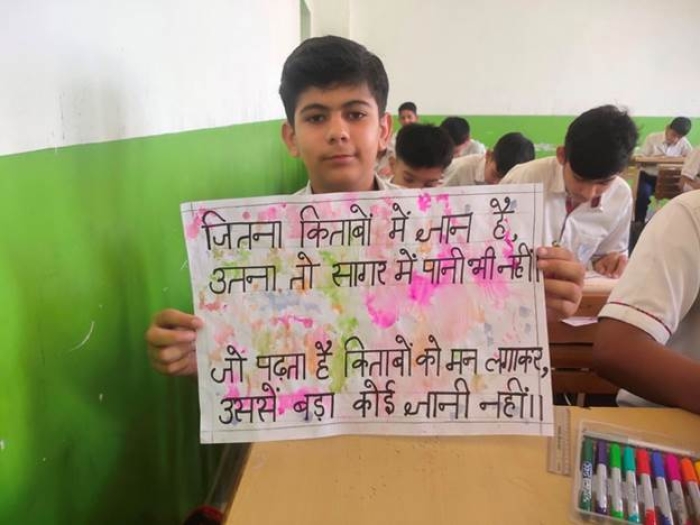 जितना किताबों में ज्ञान है,
उतना तो सागर में पानी भी नहीं।
जो पढ़ता है किताबों को मन लगाकर,
उससें बड़ा कोई ज्ञानी नहीं।।